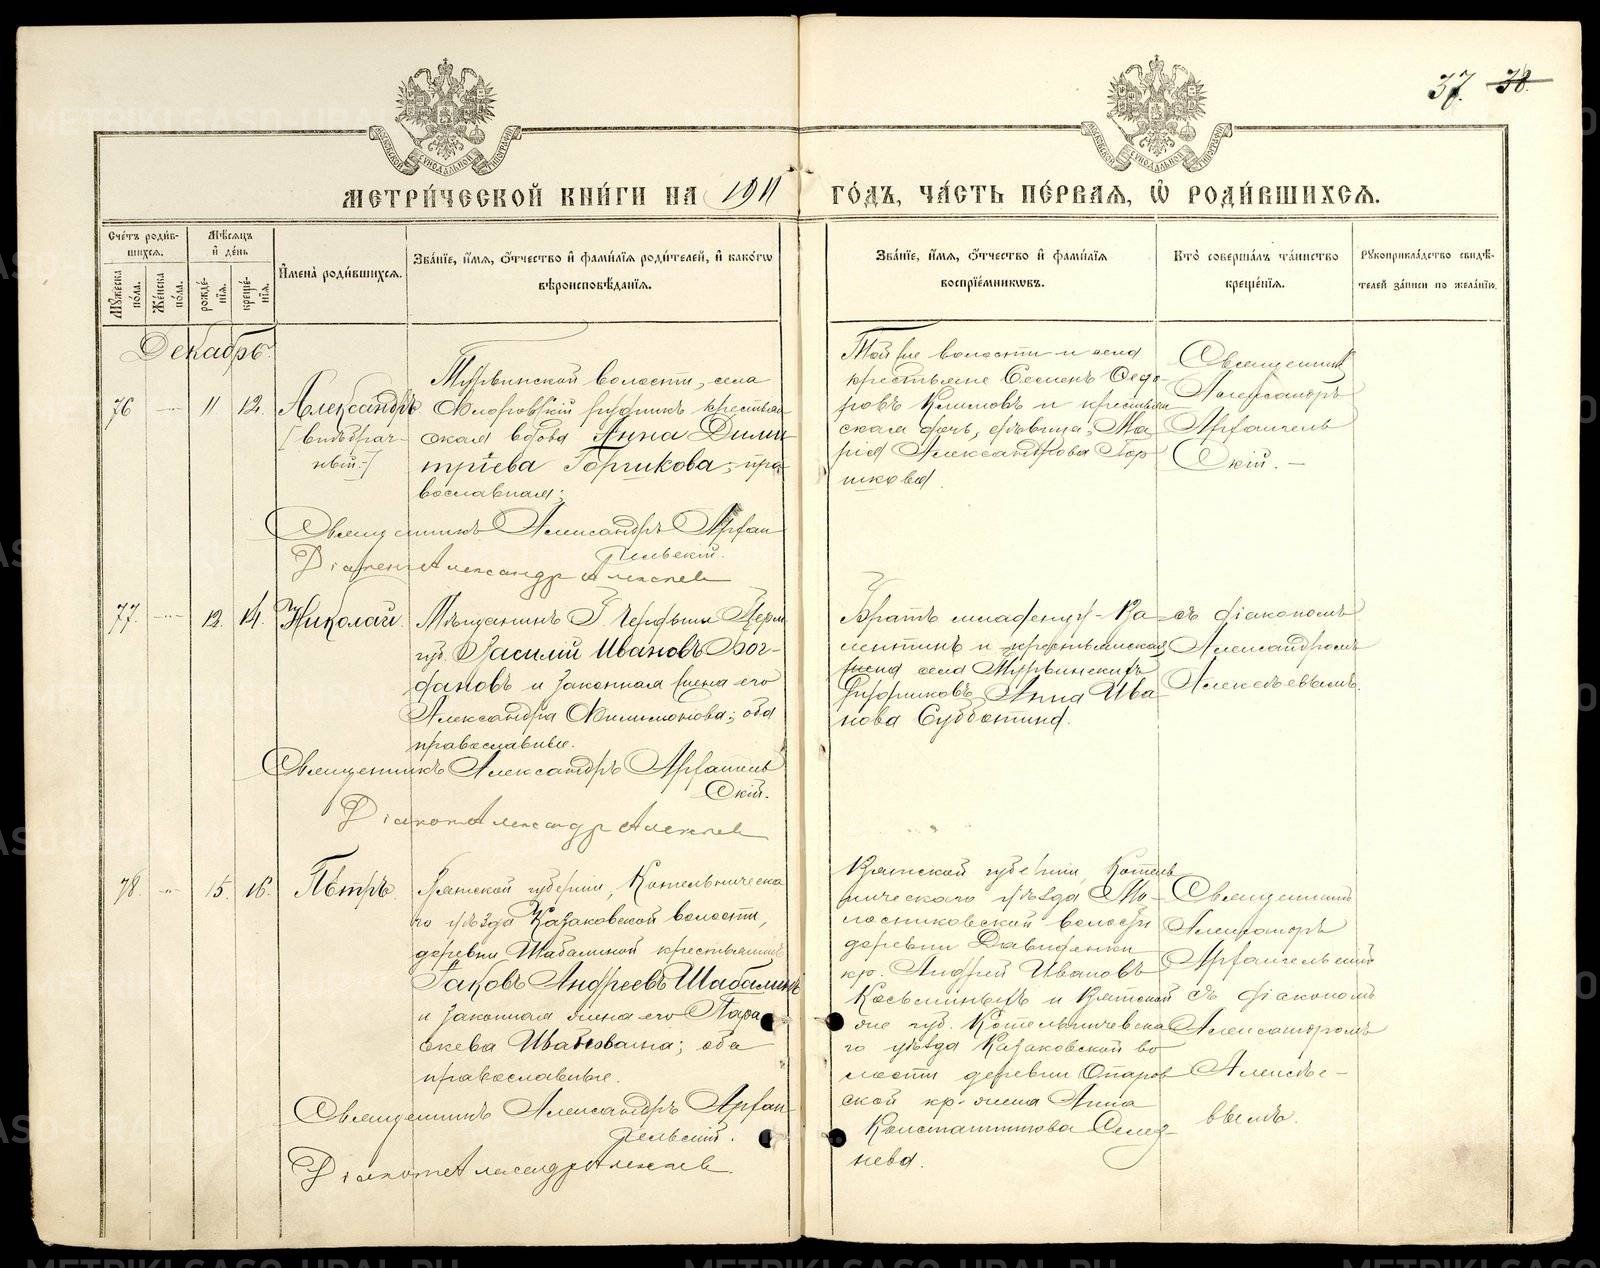 37. 38.
МЕТРИ́ЧЕСКОЙ КНИ́ГИ НА 1911 ГО́ДЪ, ЧА́СТЬ ПЕ́РВАѦ, Ѡ҆ РОДИ́ВШИХСѦ.
Сче́тъ роди́в-
шихсѧ.
Мꙋ́жеска по́ла.
Же́нска по́ла.
Мѣ́сѧцъ и҆ де́нь
рожде́нїѧ.
креще́нїѧ.
И҆мена̀ роди́вшихсѧ.
Зва́нїе, и҆́мѧ, ѻ҆́тчество и҆ фами́лїѧ роди́телей, и҆ како́гѡ
вѣроисповѣ́данїѧ.
Зва́нїе, и҆́мѧ, ѻ҆́тчество и҆ фами́лїѧ
воспрїе́мникѡвъ.
Кто̀ соверша́лъ та́инство
креще́нїѧ.
Рꙋкоприкла́дство свидѣ́-
телей за́писи по жела́нїю.
Декабрь
76 11 12. Александръ
[внѣбрач-
ный.]
волости, села
крестьян
ская вдова Анна Дими
трiева Горшикова; пра-
вославная;
Священникъ Александръ Архан
гельскiй.
Дiаконъ Александр Алексеев
Той же волости и села
крестьяне Семенъ Ѳедо-
ровъ Климовъ и крестьян
ская дочь, дѣвица, Ма-
рiя Александрова Гор
шкова.
Священникъ
Александръ
Архангель
Скiй. —
77. 12. 14. Николай
Мѣщанинъ Г. Чердыни Перм
губ. Василiй Ивановъ Бог-
дановъ и законная жена его
Александра Филимонова; оба
православные.
Священникъ Александръ Архангель
Скiй.
Дiаконъ Александр Алексеев
Братъ младенца - Ва-
лентинъ и крестьянская
жена села
Анна Ива-
нова Субботина.
съ дiакономъ
Александромъ
Алексѣевымъ.
78. 15. 16. Пётръ
Вятской губернiи, Котельническа
го уѣзда Казаковской волости,
деревни Шабалиной крестьянинъ
Iаковъ Андреевъ Шабалинъ
и законная жена его Пара
скева Ивановна; оба
православные.
Священникъ Александръ Архан
гельскiй.
Дiаконъ Александр Алексеев.
Вятской губернiи, Котель
ническаго уѣзда Мо-
лостниковской волости
деревни Давиденки
кр. Андрей Ивановъ
Косьминыхъ и Вятской
же губ. Котельническа
го уѣзда Казаковской во
лости деревни Опаров
ской кр. жена Анна
Константинова Селез-
нева.
Священникъ
Александръ
Архангельскiй
съ дiакономъ
Александромъ
Алексѣе-
вымъ.